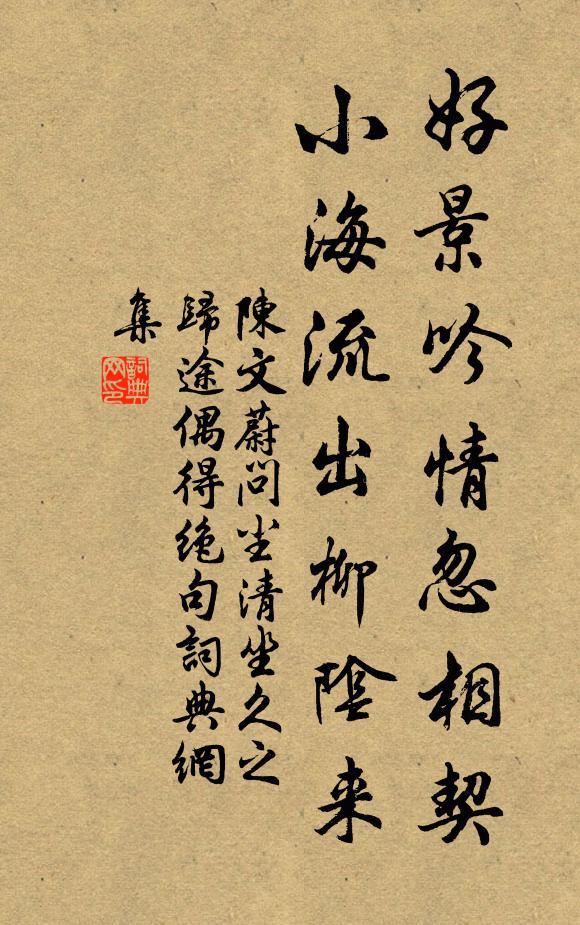 好景吟情忽相契
小海流出柳陰来
陳文蔚問尘清坐久之
歸途偶得絶句詞典網
集
詞典
网印